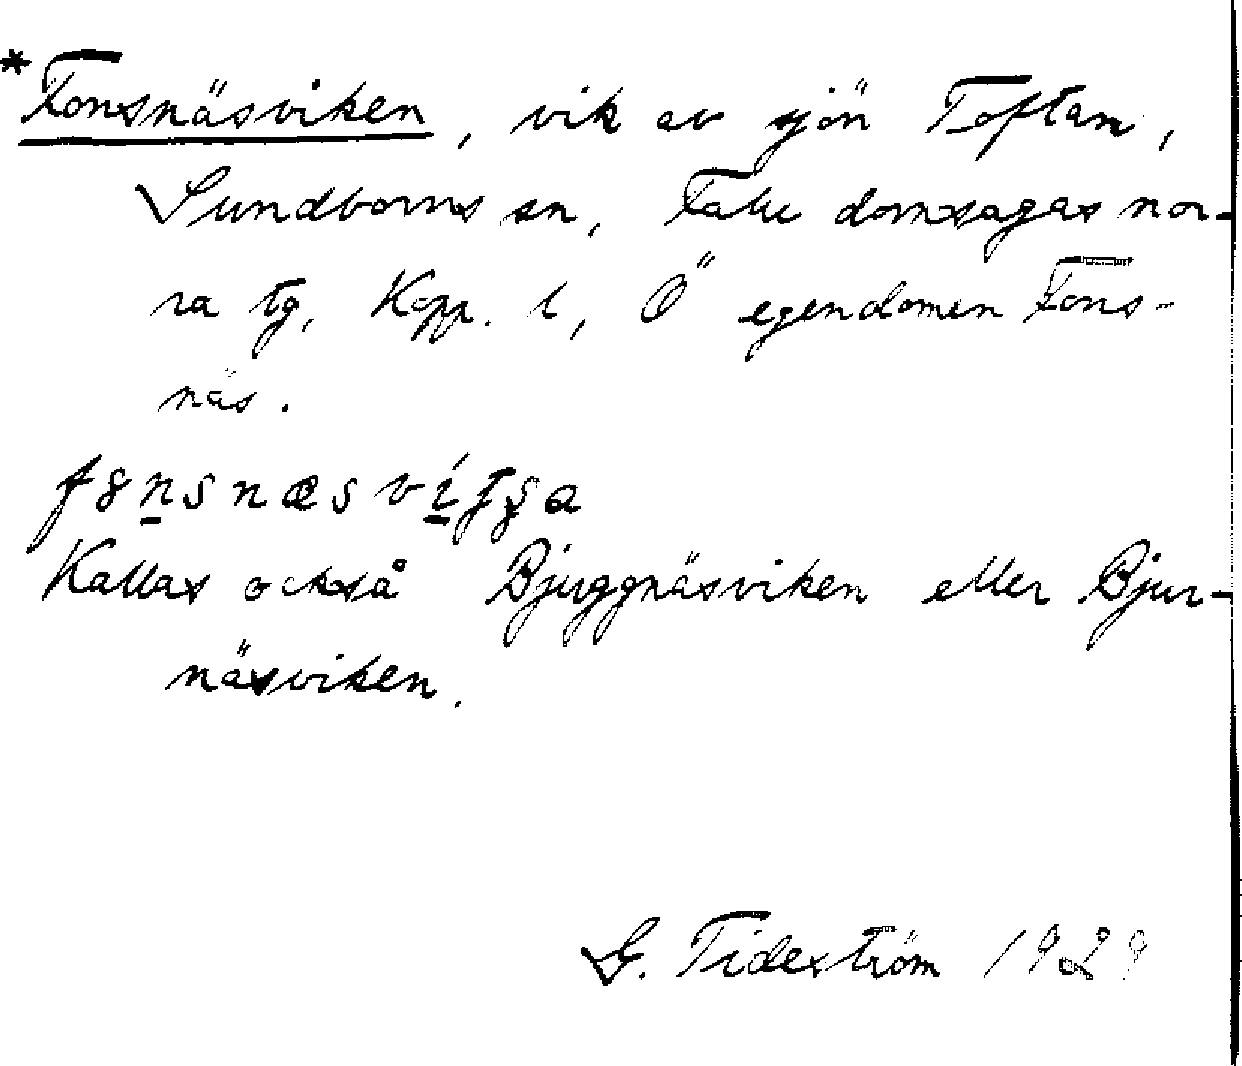 *Fonsnäsviken, vik av sjön Toftan,
Sundborns sn, Falu domsagas nor-
ra tg, Kopp. l, Ö egendomen Fons-
näs.
Kallas också Bjuggnäsviken eller Bjur-
näsviken.
G. Tideström 1929